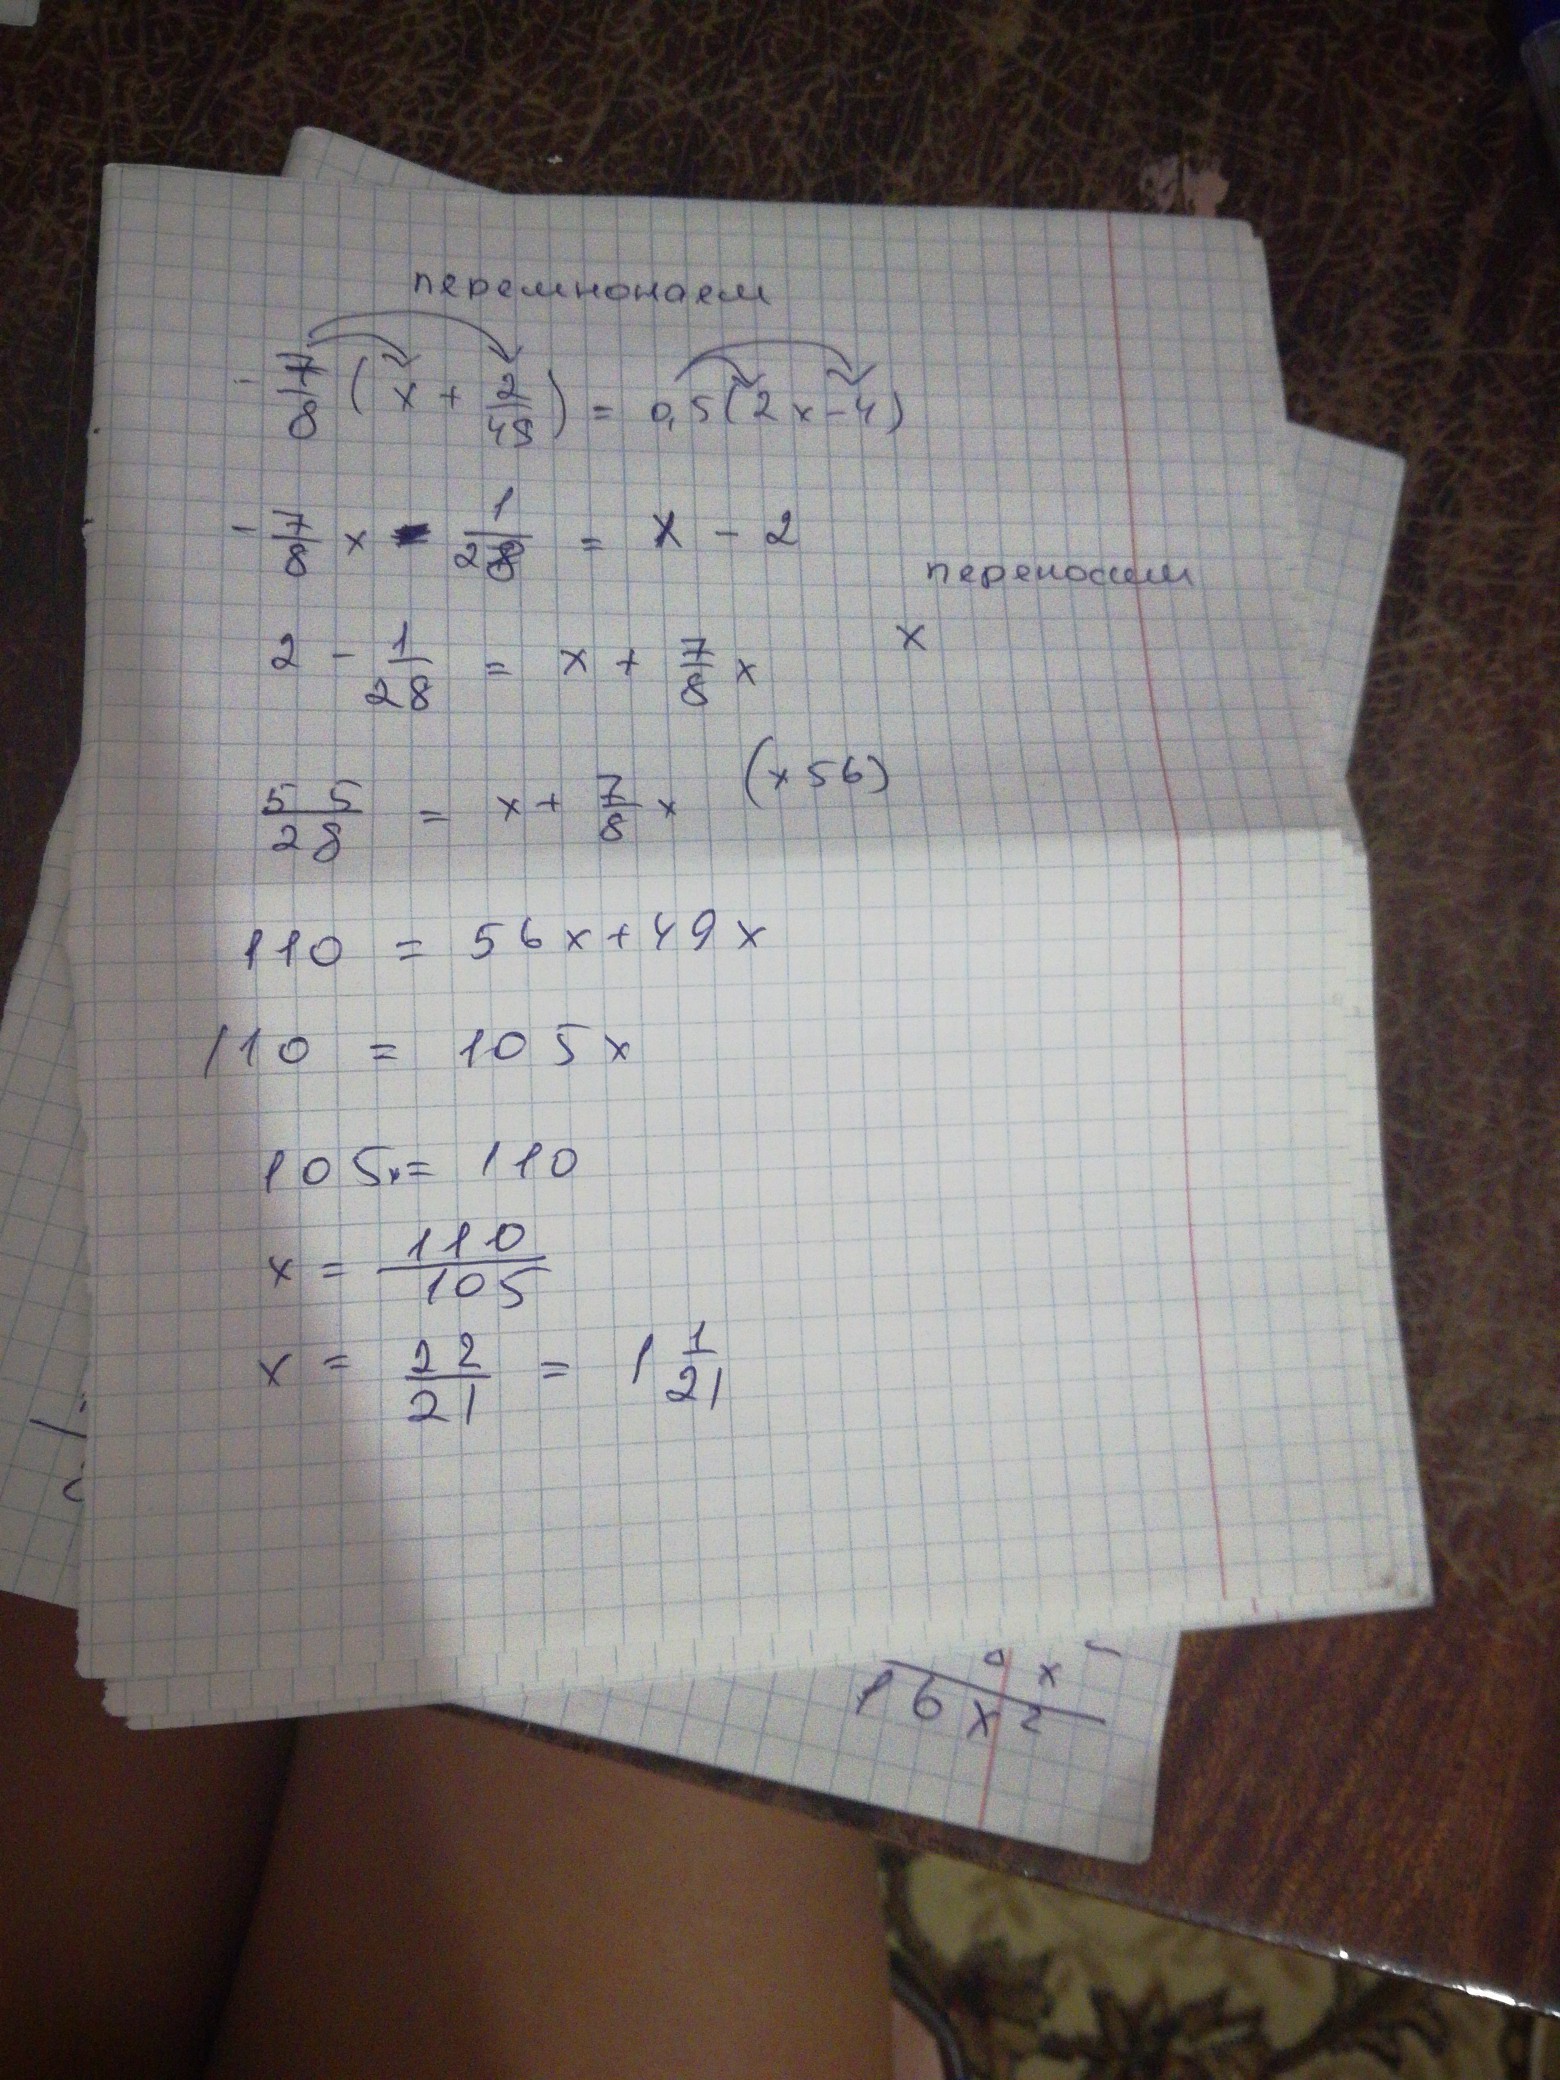 перемнонаем
-7/8 (x + 2/49) = 0,5(2x-4)
-7/8 x - 1/28 = x - 2
переносим
2 - 1/28 = x + 7/8 x x
55/28 = x + 7/8 x (x56)
110 = 56x+49x
110 = 105x
105x= 110
x = 110/105
x = 22/21 = 1 1/21
x
16x2